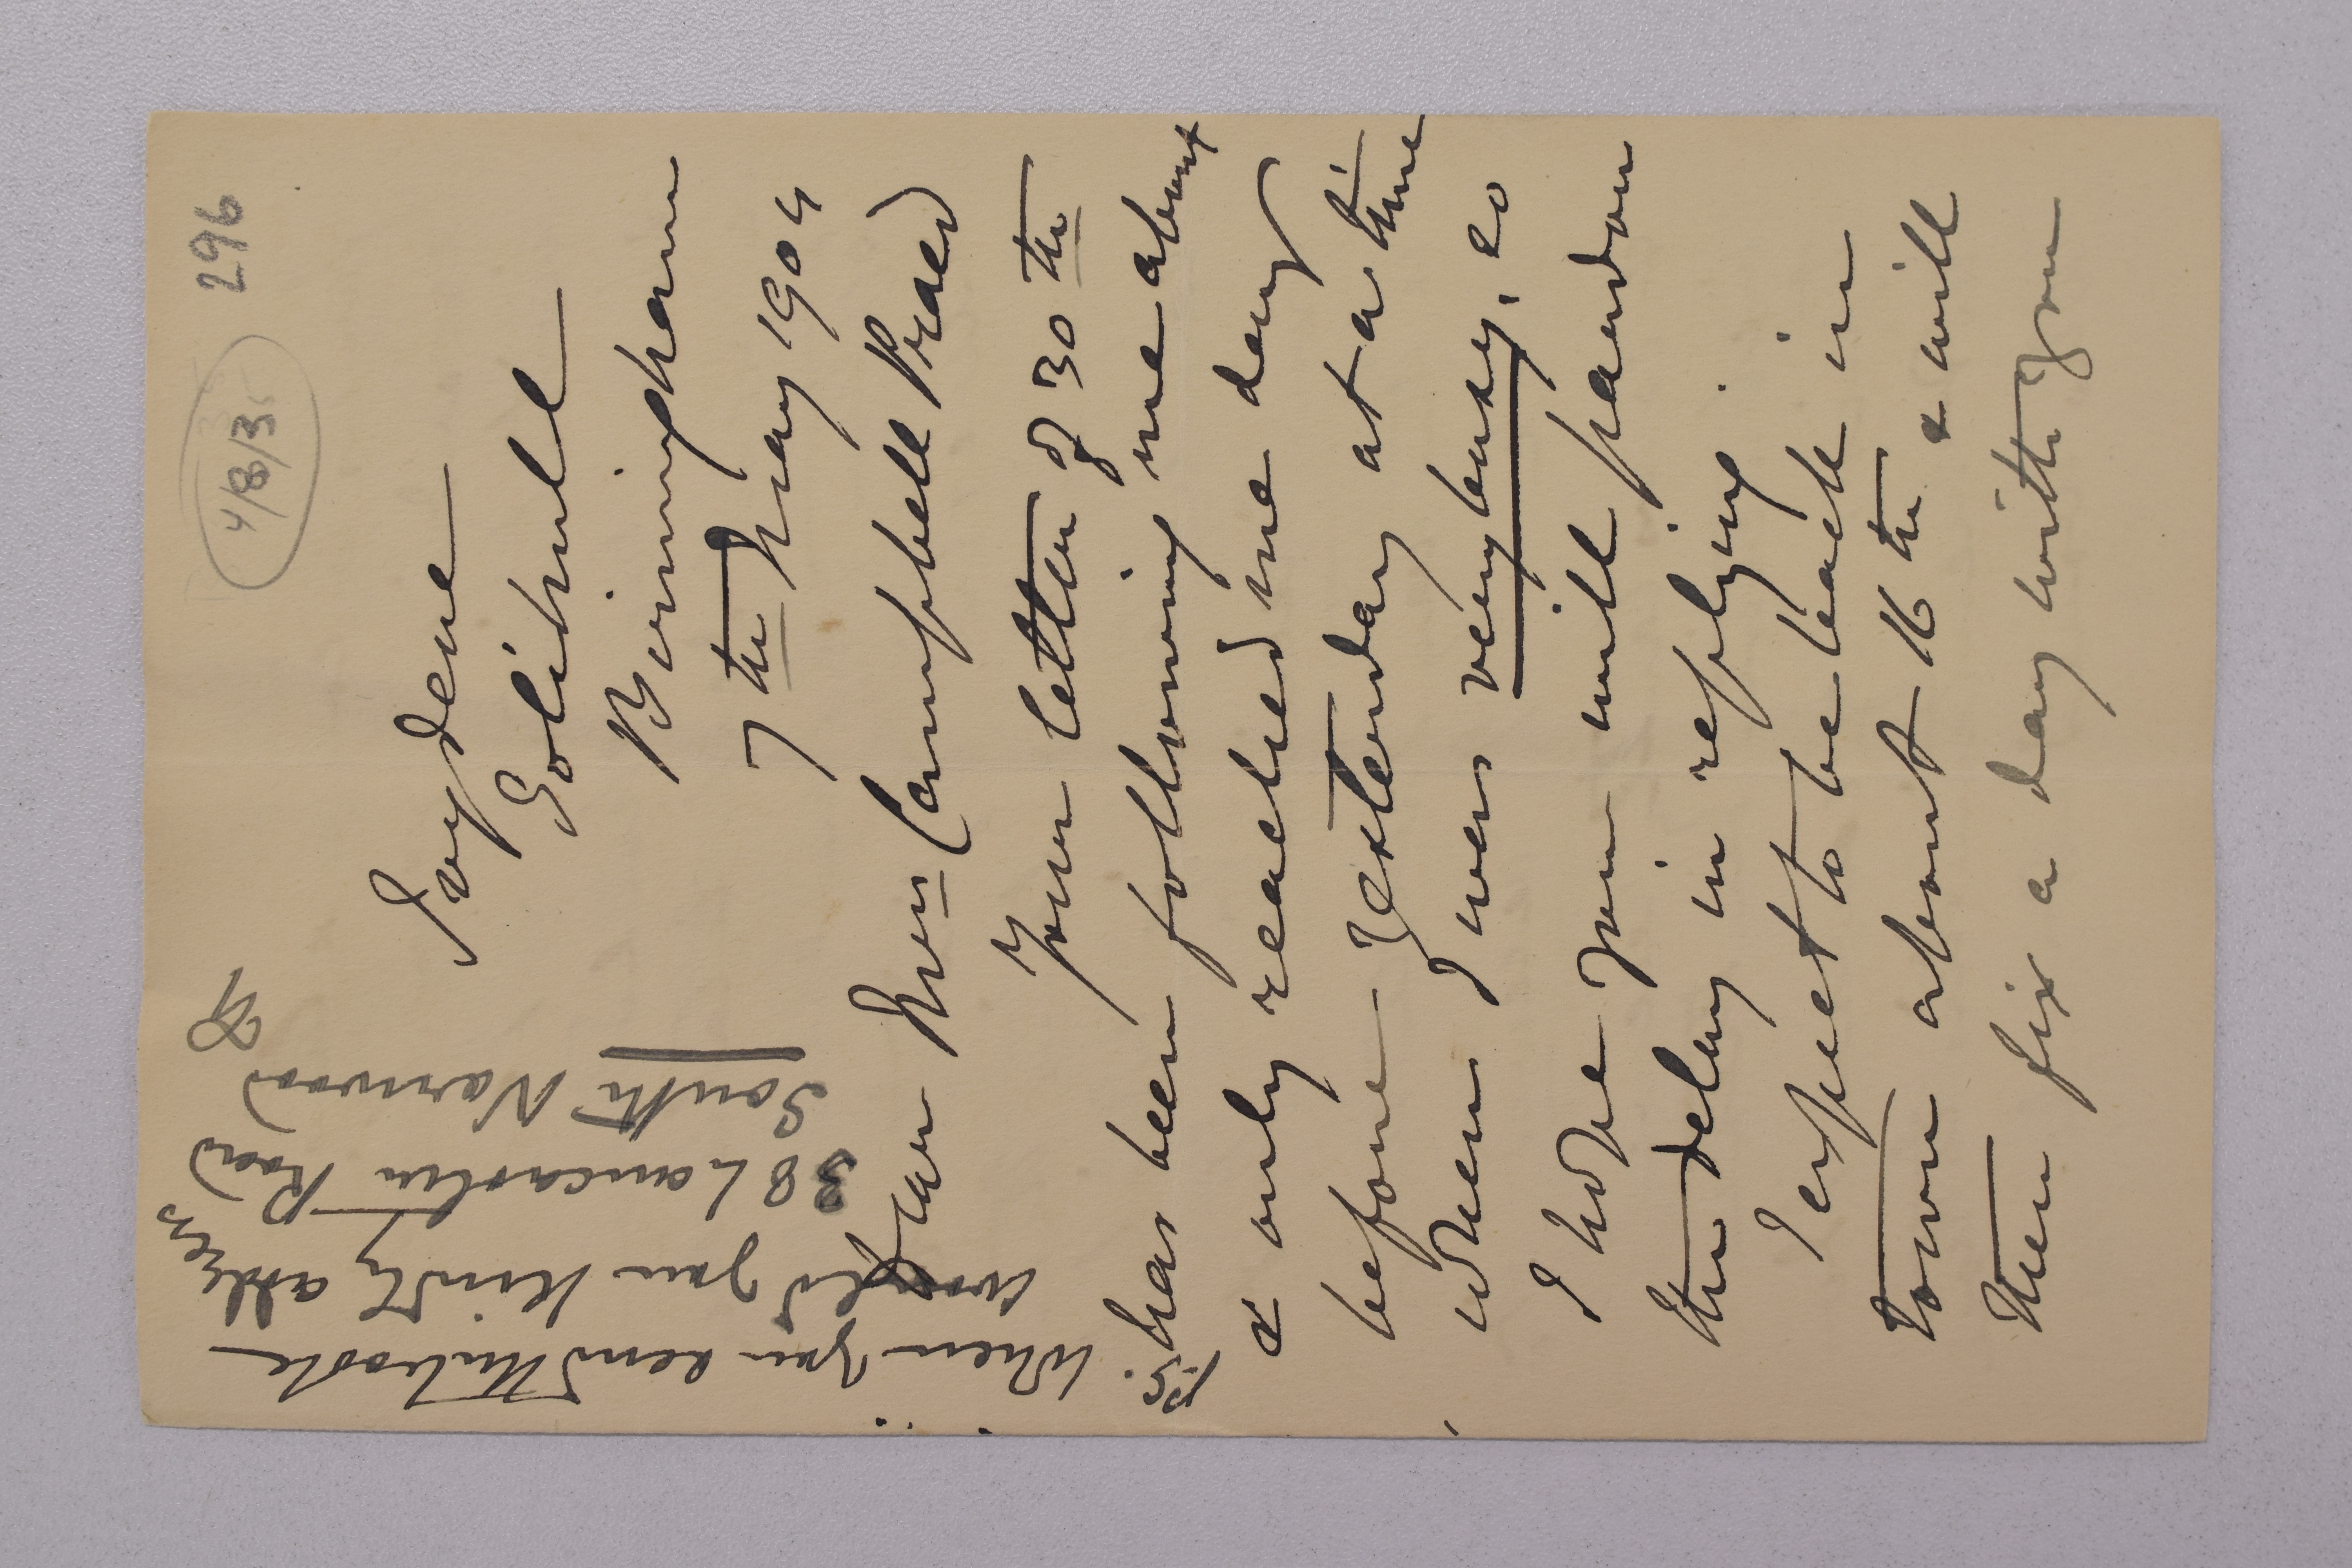 296
4/8/3
Solihull
Birmingham
7th May 1904
Dear Mrs Campbell Praed
Your letter of 30th
has been following me about
& only reached me day
before yesterday at a time
when I was very busy, so
I hope you will pardon
the delay in replying.
I expect to be back in
town about 16th & will
then fix a day with you
When you send
would you kindly
38 Lancaster Road
South Norwood